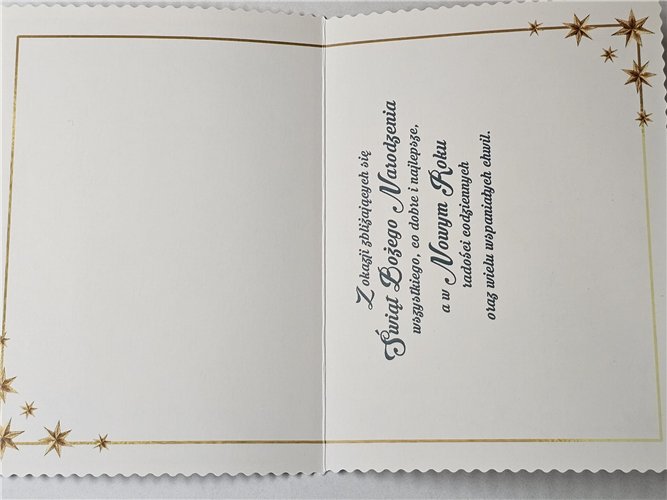 Z okazji zbliżających się
Świąt Bożego Narodzenia
wszystkiego, co dobre i najlepsze,
a w Nowym Roku
radości codziennych
oraz wielu wspaniałych chwil.